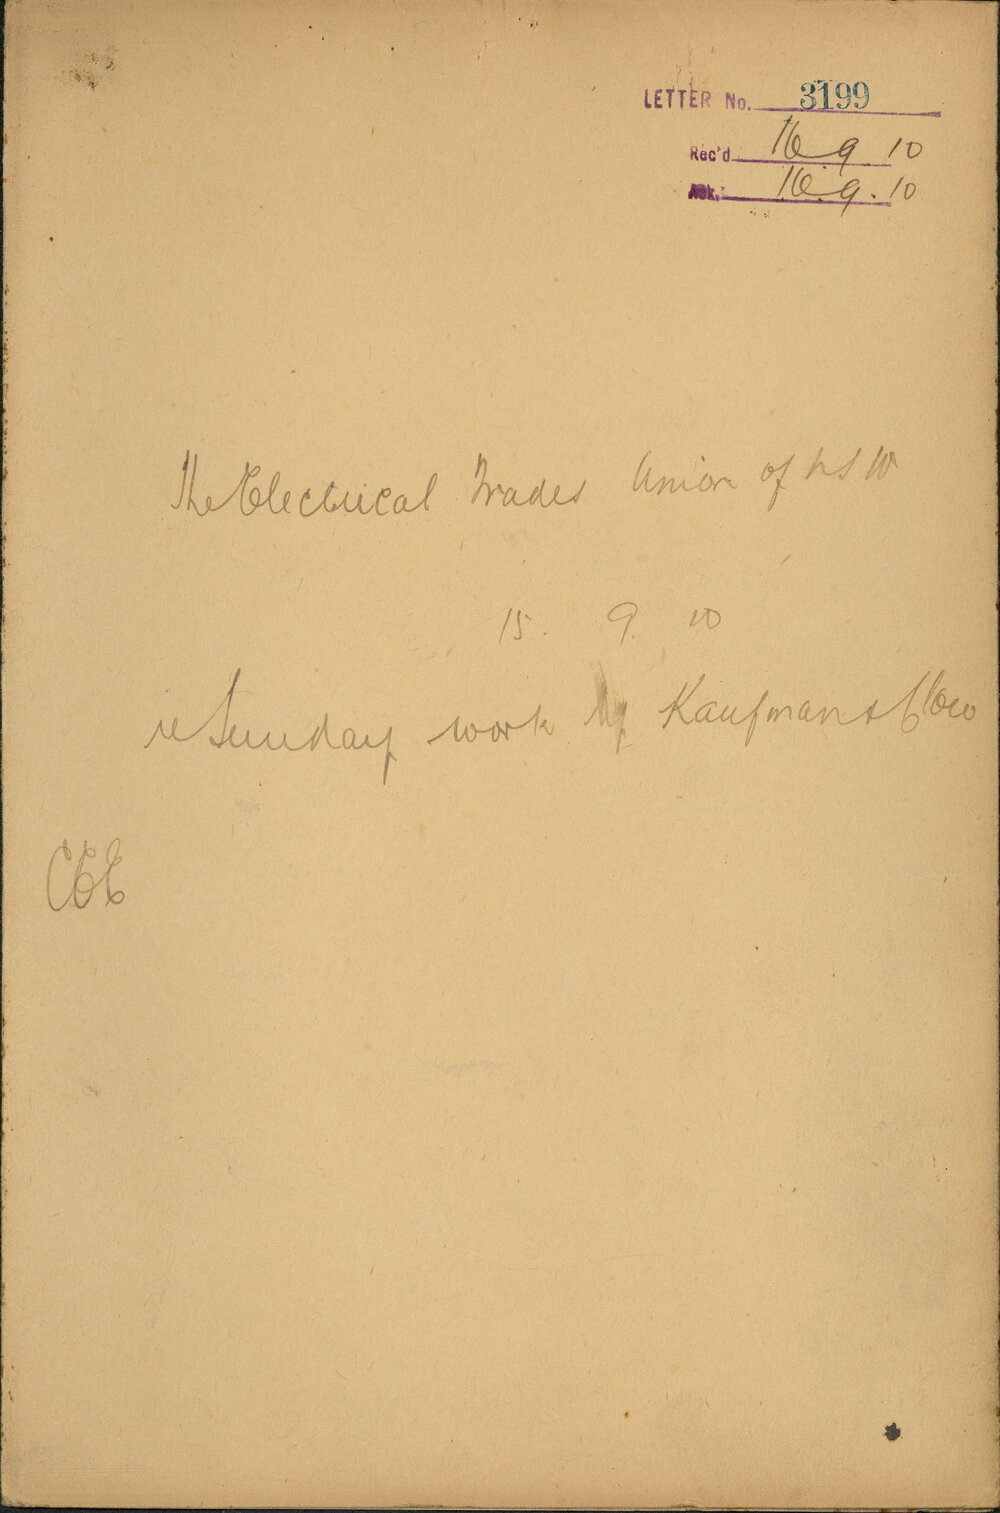 LETTER No. 3199
Rec'd. 16 9 10
Ack. 16.9.10
The Electrical Trades Union of N S W
15. 9. 10
re Sunday work by Kaufman &